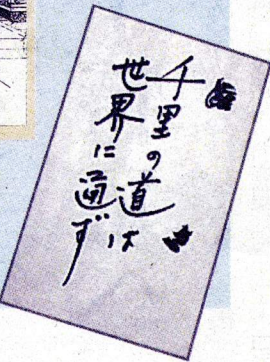 千里の道は
世界に通ず